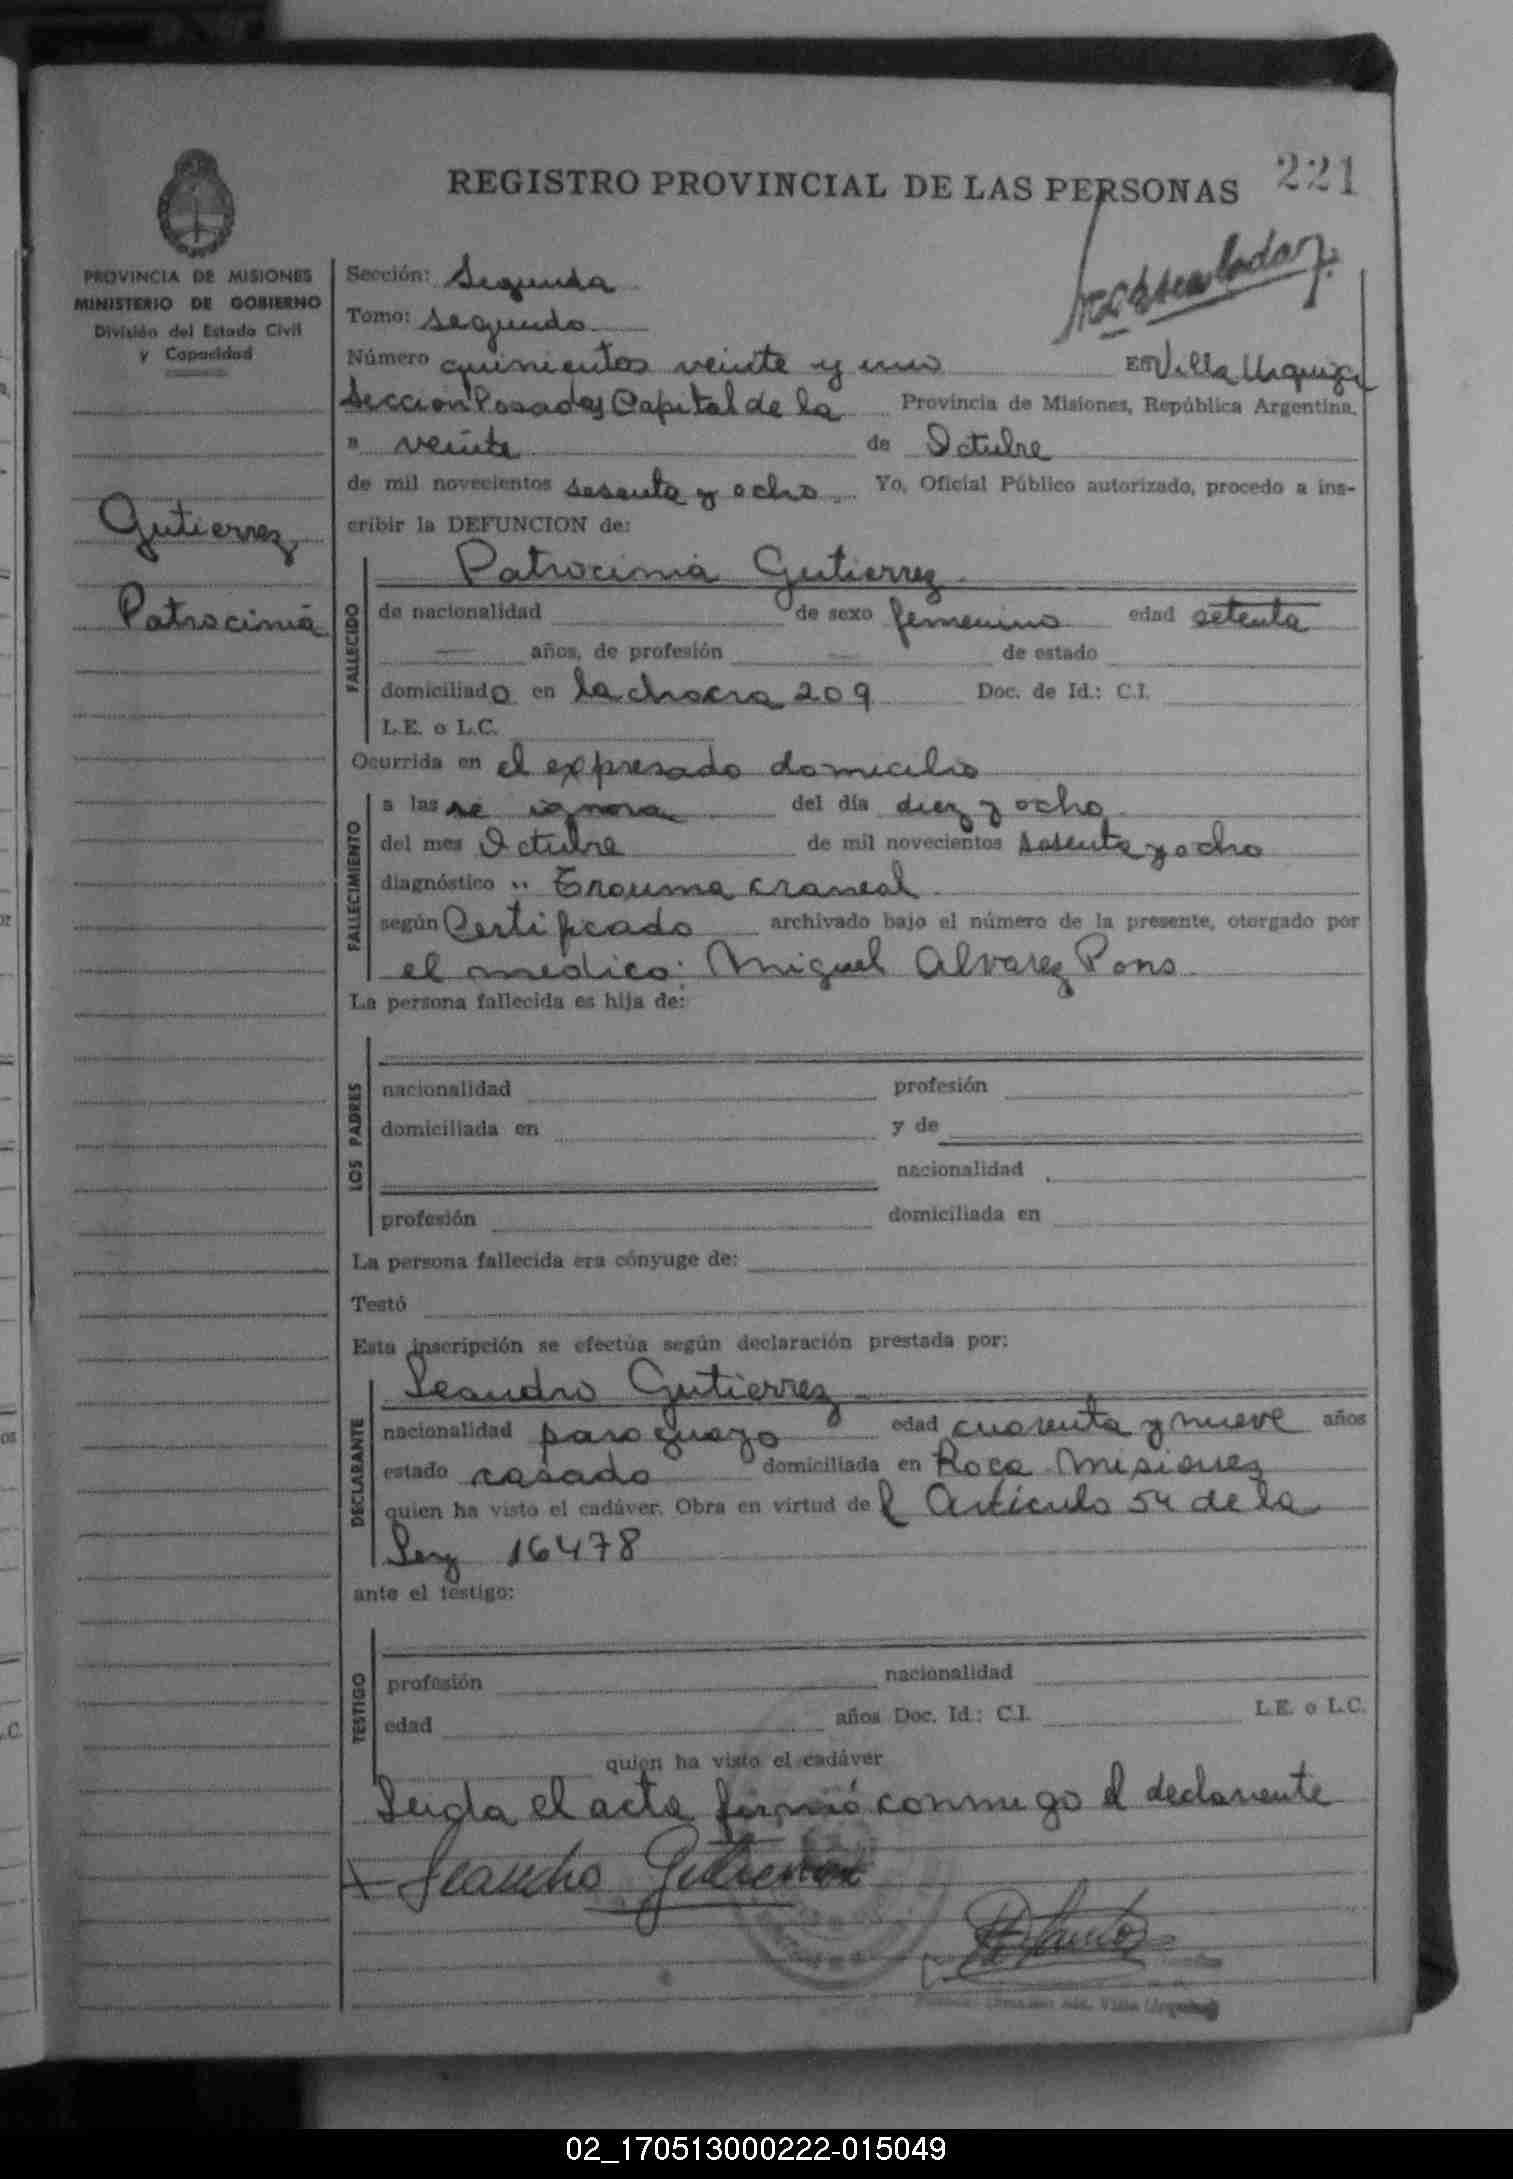 221
REGISTRO PROVINCIAL DE LAS PERSONAS
PROVINCIA DE MISIONES
MINISTERIO DE GOBIERNO
División del Estado Civil
y Capacidad
Gutierrez
Patrocinia
Sección: Segunda
Tomo: Segundo
Número quinientos veinte y uno En Villa Urquiza
Sección Posadas Capital de la Provincia de Misiones, República Argentina,
a veinte de Octubre
de mil novecientos sesenta y ocho Yo, Oficial Público autorizado, procedo a ins-
cribir la DEFUNCION de:
FALLECIDO
Patrocinia Gutierrez
de nacionalidad de sexo femenino edad setenta
años, de profesión de estado
domiciliado en la chacra 209 Doc. de Id.: C.I.
L.E. o L.C.
Ocurrida en el expresado domicilio
FALLECIMIENTO
a las se ignora del día diez y ocho
del mes Octubre de mil novecientos sesenta y ocho
diagnóstico " Trauma craneal
según Certificado archivado bajo el número de la presente, otorgado por
el medico: Miguel Alvarez Pons
La persona fallecida es hija de:
LOS PADRES
nacionalidad profesión
domiciliada en y de
nacionalidad
profesión domiciliada en
La persona fallecida era cónyuge de:
Testó
Esta inscripción se efectúa según declaración prestada por:
DECLARANTE
Leandro Gutierrez
nacionalidad paraguayo edad cuarenta y nueve años
estado casado domiciliada en Roca Misiones
quien ha visto el cadáver. Obra en virtud de l Artículo 54 de la
Ley 16478
ante el testigo:
TESTIGO
profesión nacionalidad
edad años Doc. Id.: C.I. L.E. o L.C.
quien ha visto el cadáver
Leida el acta firmó conmigo el declarante
Leandro Gutierrez
02_170513000222-015049